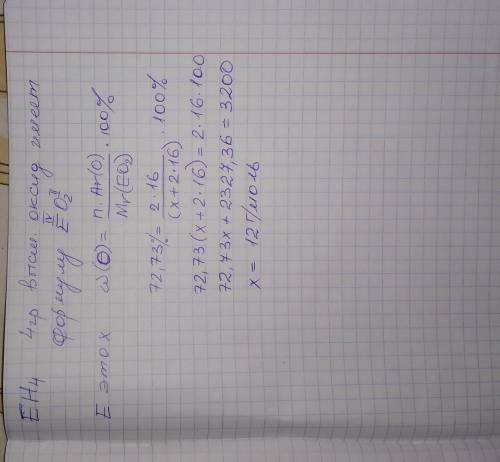 EH₄ 4гр высш. оксид имеет
формулу E^IV O₂^II
E это x ω(O) = n·Ar(O) / Mr(EO₂) · 100%
72,73% = 2·16 / (x+2·16) · 100%
72,73(x+2·16) = 2·16·100
72,73x + 2327,36 = 3200
x = 12 г/моль